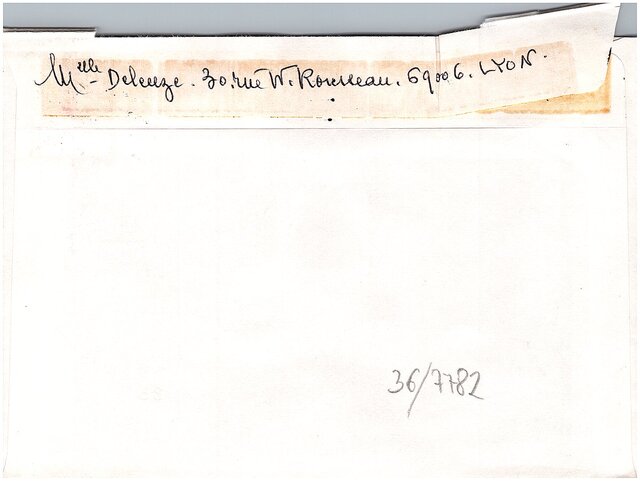 Mlle Deleuze. 30. rue W. Rousseau. 69006. LYON.
36/7782